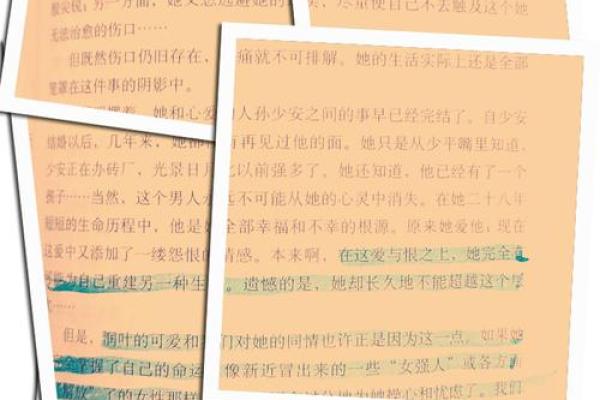 另一方面，她又总逃避她的 尽量使自己不去触及这个她
无法治愈的伤口……
但既然伤口仍旧存在， 痛就不可排解。她的生活实际上还是全部
笼罩在这件事的阴影中。
摆着，她和心爱 人孙少安之间的事早已经完结了。自少安
结婚以后，几年来，她都 有再见过他的面。她只是从少平嘴里知道，
少安正在办砖厂，光景日月 以前强多了。她还知道，他已经有了一个
孩子……当然，这个男人 远不可能从她的心灵中消失。在她二十八年
短短的生命历程中，他是 全部幸福和不幸的根源。原来她爱他；现在
这爱中又添加了一缕怨恨 情感。本来啊，在这爱与恨之上，她完全
为自己重建另一种生 。遗憾的是，她却长久地不能超越这个
……
但是，润叶的可爱和 们对她的同情也许正是因为这一点，如果她
掌握了自己的命运 像新近冒出来的一些“女强人”或各方
“解放”了的女性那样 地为她操心和忧虑了。我们